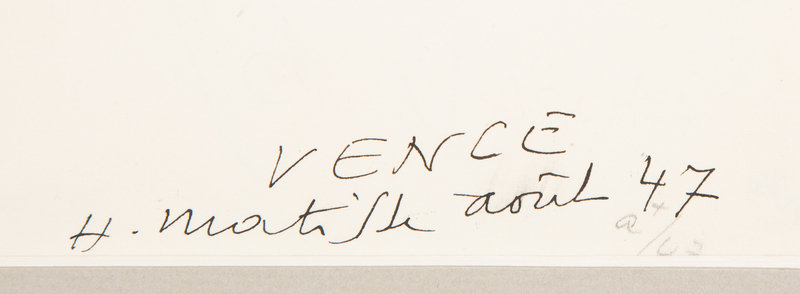 VENCE
H. Matisse août 47